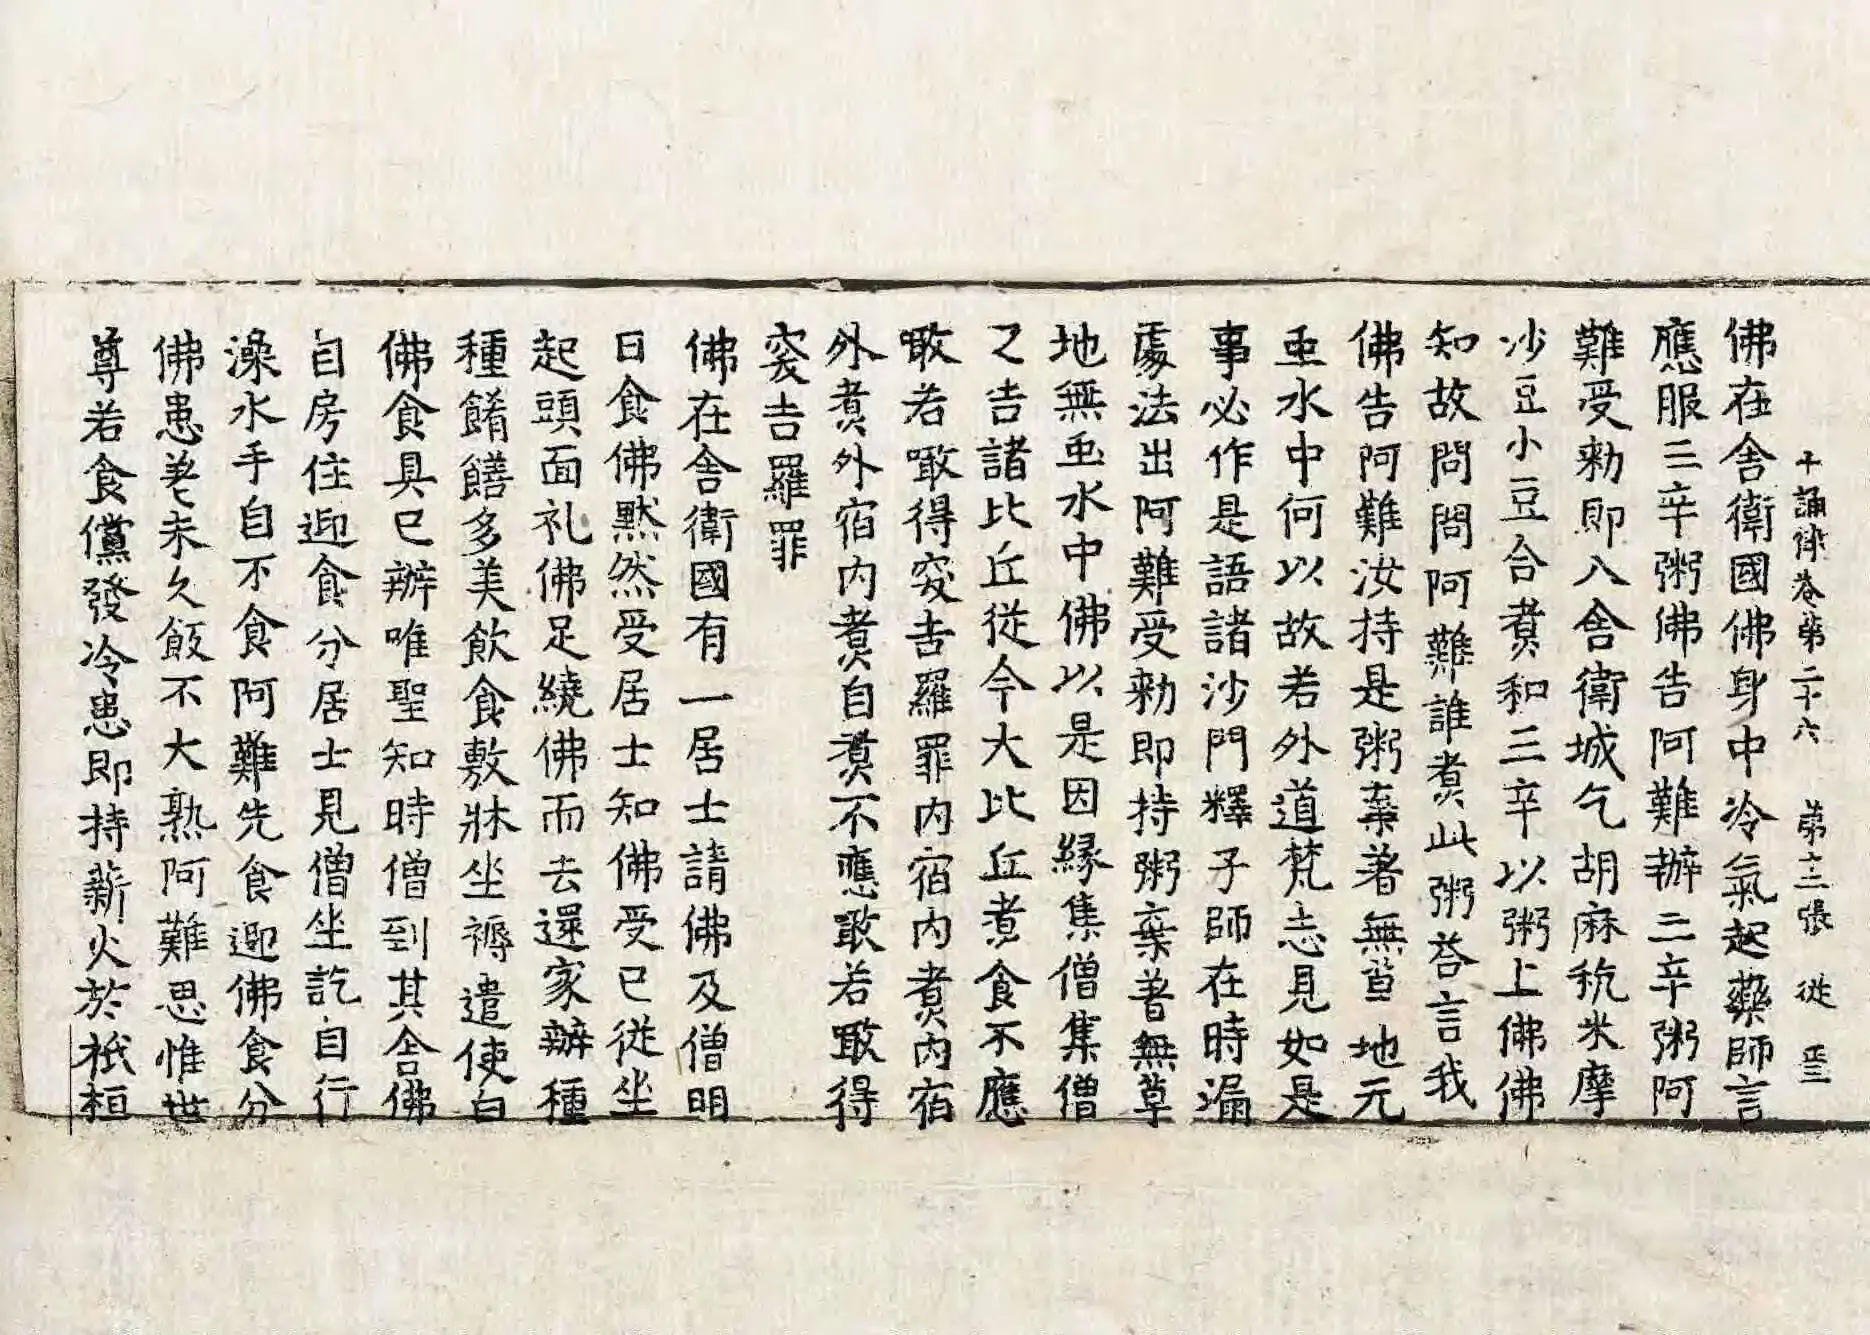 十誦律卷第二十六 第十三張 從
佛在舍衛國佛身中冷氣起藥師言
應服三辛粥佛告阿難辦三辛粥阿
難受勑即入舍衛城乞胡麻秔米摩
沙豆小豆合煮和三辛以粥上佛佛
知故問問阿難誰煮此粥荅言我
佛告阿難汝持是粥棄著無草地无
虫水中何以故若外道梵志見如是
事必作是語諸沙門釋子師在時漏
處法出阿難受勑即持粥棄著無草
地無虫水中佛以是因緣集僧集僧
已告諸比丘從今大比丘煮食不應
噉若噉得突吉羅罪內宿內煮內宿
外煮外宿內煮自煮不應噉若噉得
突吉羅罪
佛在舍衛國有一居士請佛及僧明
日食佛默然受居士知佛受已從坐
起頭面礼佛足繞佛而去還家辦種
種餚饍多美飲食敷牀坐褥遣使白
佛食具已辦唯聖知時僧到其舍佛
自房住迎食分居士見僧坐訖自行
澡水手自不食阿難先食迎佛食分
佛患差未久飯不大熟阿難思惟世
尊若食儻發冷患即持薪火於祇桓